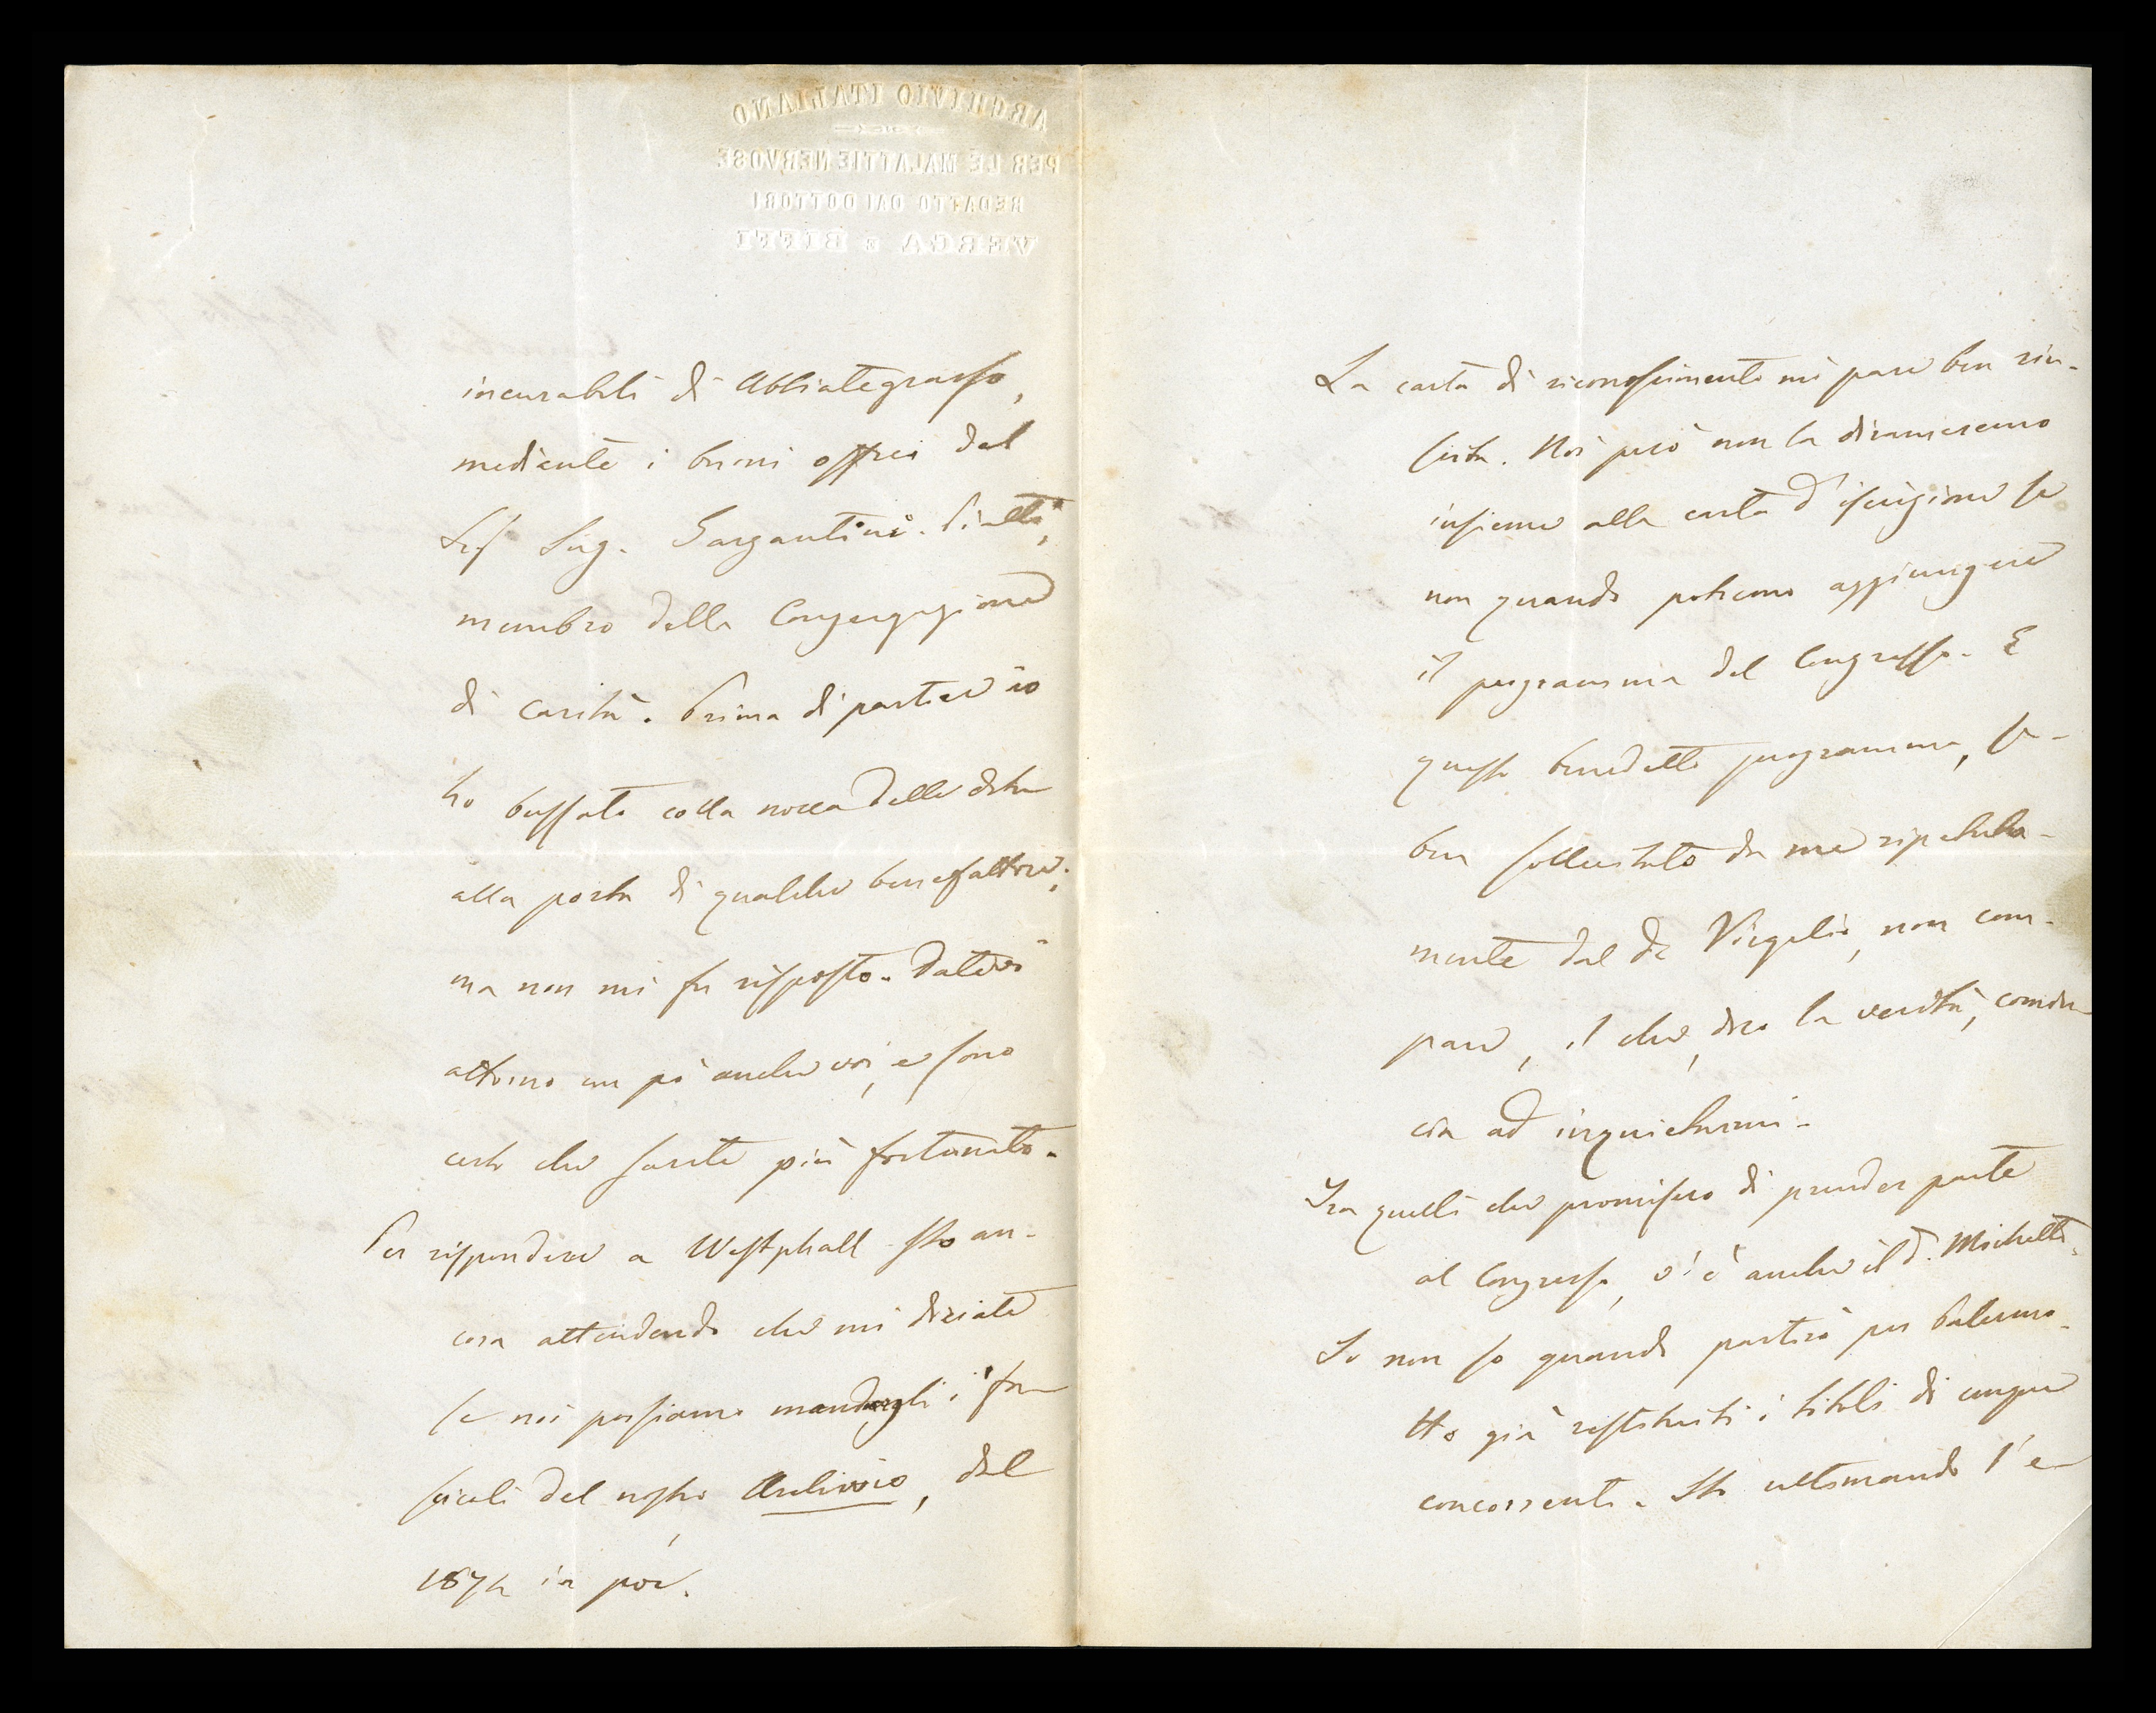 ARCHIVIO ITALIANO
PER LE MALATTIE NERVOSE
REDATTO DAI DOTTORI
VERGA E BIFFI
incurabili di Abbiategrasso,
mediante i buoni offici del
Sig. Gargantini-Piatti,
membro della Congregazione
di carità. Prima di partire io
ho bussato colla nocca delle dita
alla porta di qualche benefattore;
ma non mi fu risposto. Datevi
attorno un pò anche voi, e sono
certo che sarete più fortunato.
Per rispondere a Westphall sto an-
cora attendendo che mi diciate
se noi possiamo mandargli i fa-
scicoli del nostro Archivio, dal
1874 in poi.
La carta di riconoscimento mi pare ben riu-
scita. Noi però non la dirameremo
insieme alla carta d'iscrizione se
non quando potremo aggiungere
il programma del Congresso. E
questo benedetto programma, se-
ben sollecitato da me ripetuta-
mente dal Dr Virgilio, non com-
pare, il che, dico la verità, comin-
cia ad inquietarmi.
Tra quelli che promisero di prender parte
al Congresso, v'è anche il D. Michetti.
Io non so quando partirò per Palermo.
Ho già restituiti i titoli di cinque
concorrenti. Sto ultimando l'e-